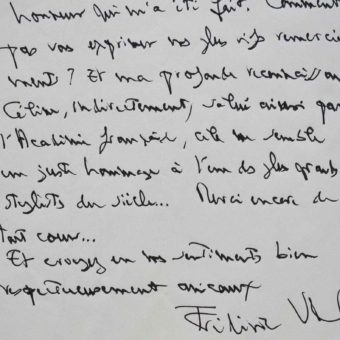 honneur qui m'a été fait. Comment
pas vous exprimer mes plus vifs remercie
ments ? Et ma profonde reconnaissan
Céline, indirectement, salué aussi par
l'Académie française, cela me semble
un juste hommage à l'un des plus grands
stylistes du siècle... Merci encore de
tout coeur...
Et croyez en mes sentiments bien
respectueusement amicaux
Frédéric